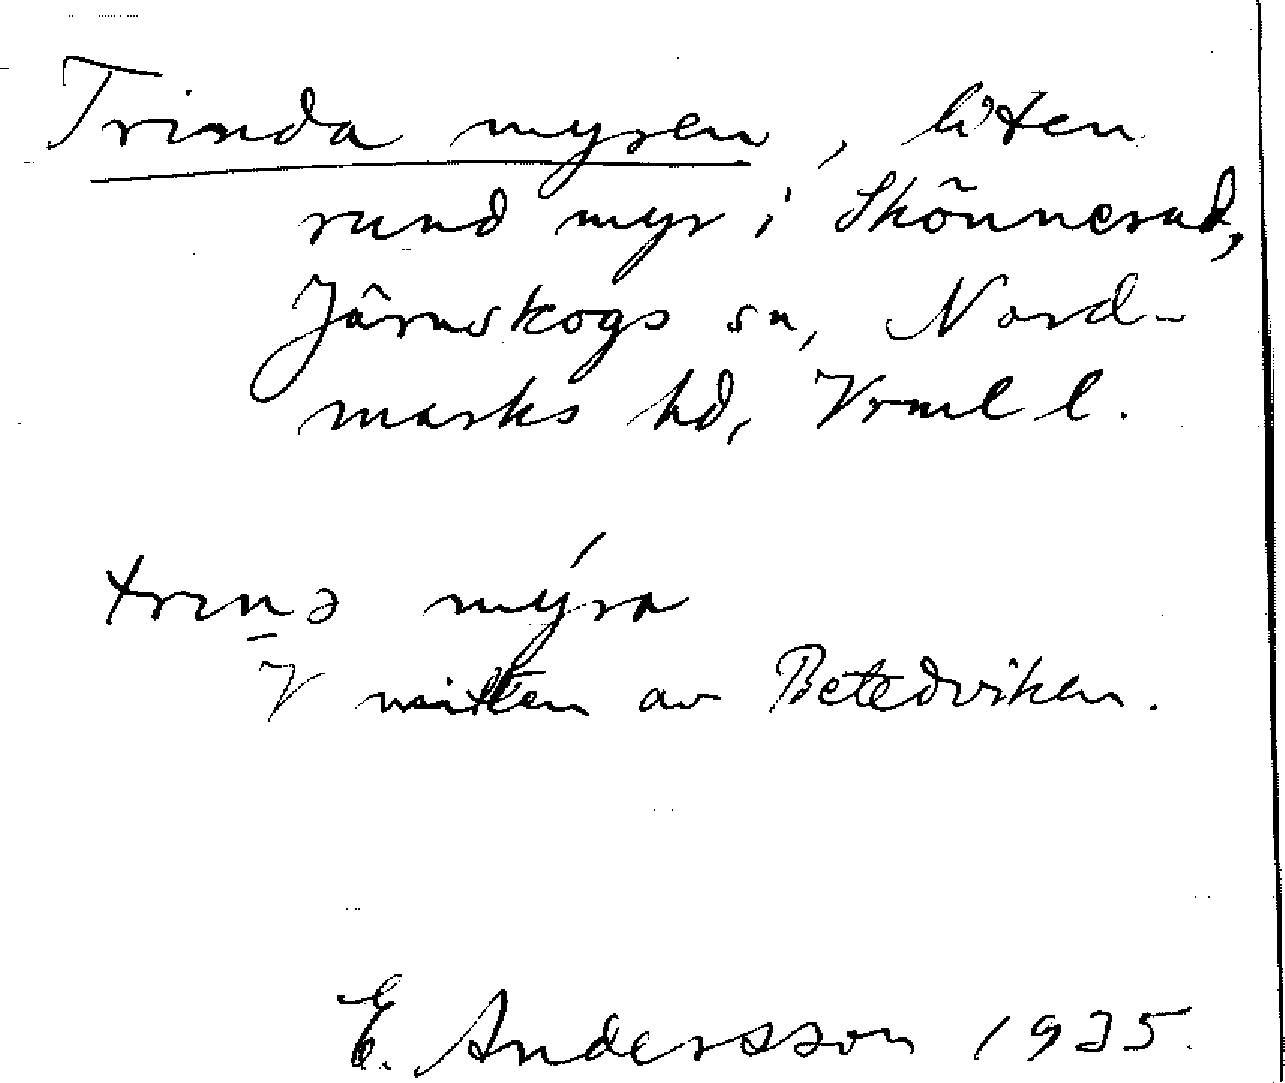 Trinda myren, liten
rund myr i Skönnerud,
Järnskogs sn, Nord-
marks hd, Vrml l.
trinə mýra
V mitten av Betedviken.
E. Andersson 1935.